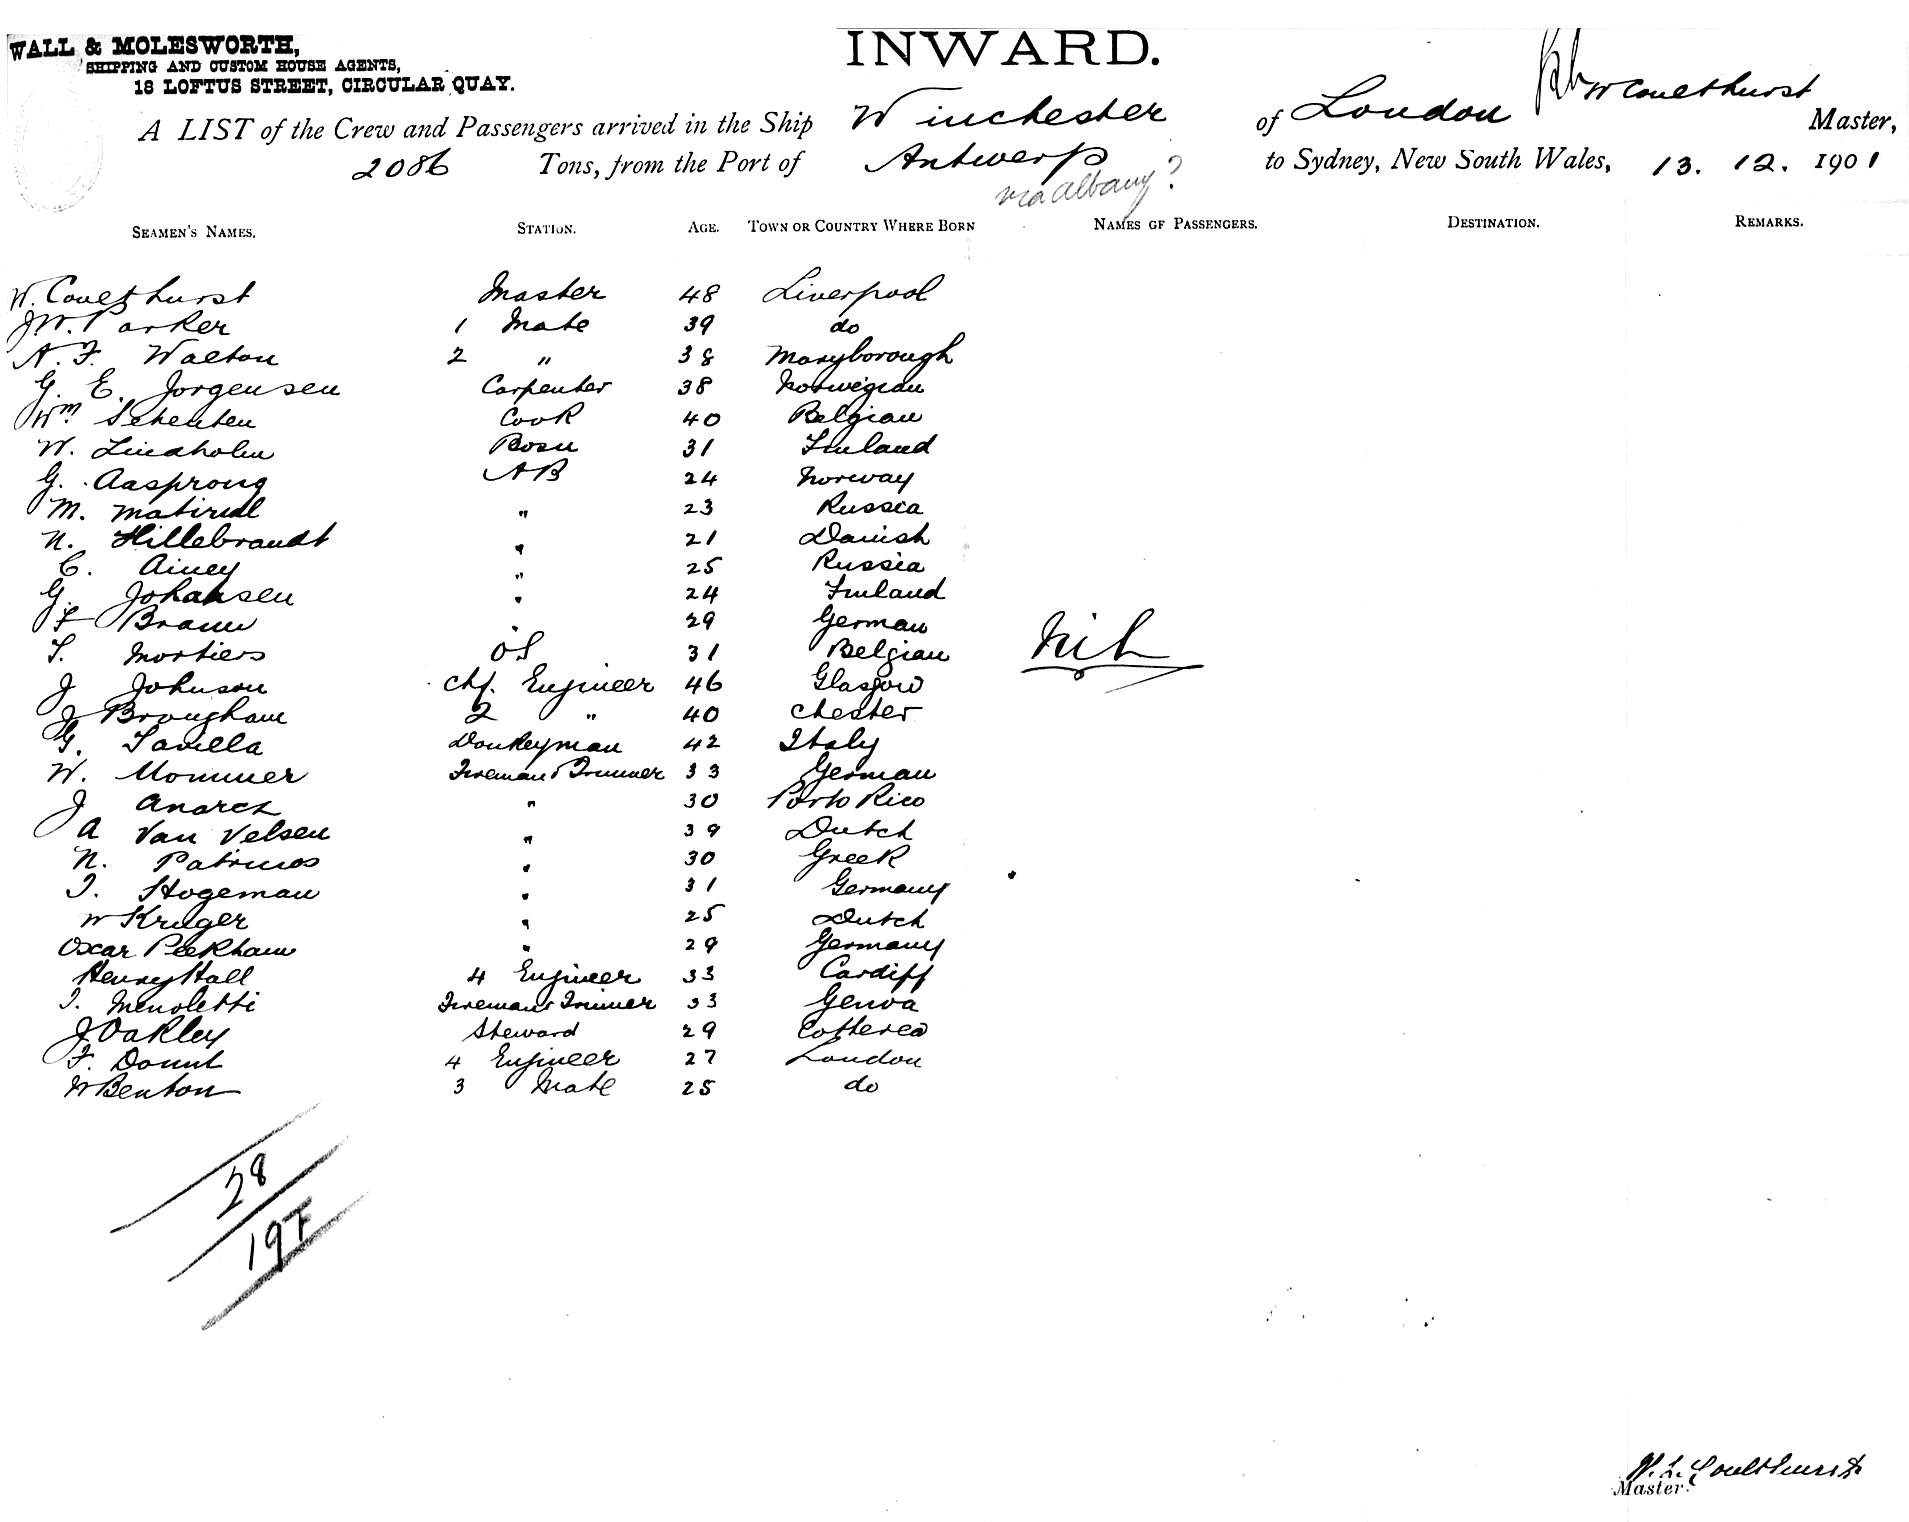 WALL & MOLESWORTH,
SHIPPING AND CUSTOM HOUSE AGENTS,
18 LOFTUS STREET, CIRCULAR QUAY.
INWARD.
A LIST of the Crew and Passengers arrived in the Ship Winchester of London W Coulthurst Master,
2086 Tons, from the Port of Antwerp to Sydney, New South Wales, 13. 12. 1901
via Albany?
SEAMEN'S NAMES. STATION. AGE. TOWN OR COUNTRY WHERE BORN NAMES OF PASSENGERS. DESTINATION. REMARKS.
W. Coulthurst Master 48 Liverpool
J.W. Parker 1 Mate 39 do
A. F. Walton 2 " 38 Maryborough
G. E. Jorgensen Carpenter 38 Norwegian
Wm. Cook 40 Belgian
W. Lindholm Bosn 31 Finland
G. Aasprong AB 24 Norway
M. " 23 Russia
N. Hillebrandt " 21 Danish
C. Ainey " 25 Russia
G. Johansen " 24 Finland
F Braun " 29 German
T. Mortiers OS 31 Belgian
Nil
J Johnson chf. Engineer 46 Glasgow
J Brougham 2 " 40 Chester
G. Donkeyman 42 Italy
W. Mommer Fireman & Trimmer 33 German
J " 30 Porto Rico
A Van Velsen " 39 Dutch
N. Patrinos " 30 Greek
J. Hogeman " 31 Germany
W Kruger " 25 Dutch
Oscar Peekham " 29 Germany
Henry Hall 4 Engineer 33 Cardiff
J. Menoletti Fireman & Trimmer 33 Genoa
J Oakley Steward 29
F. 4 Engineer 27 London
W Benton 3 Mate 25 do
28
19F
W. L. Coulthurst
Master.